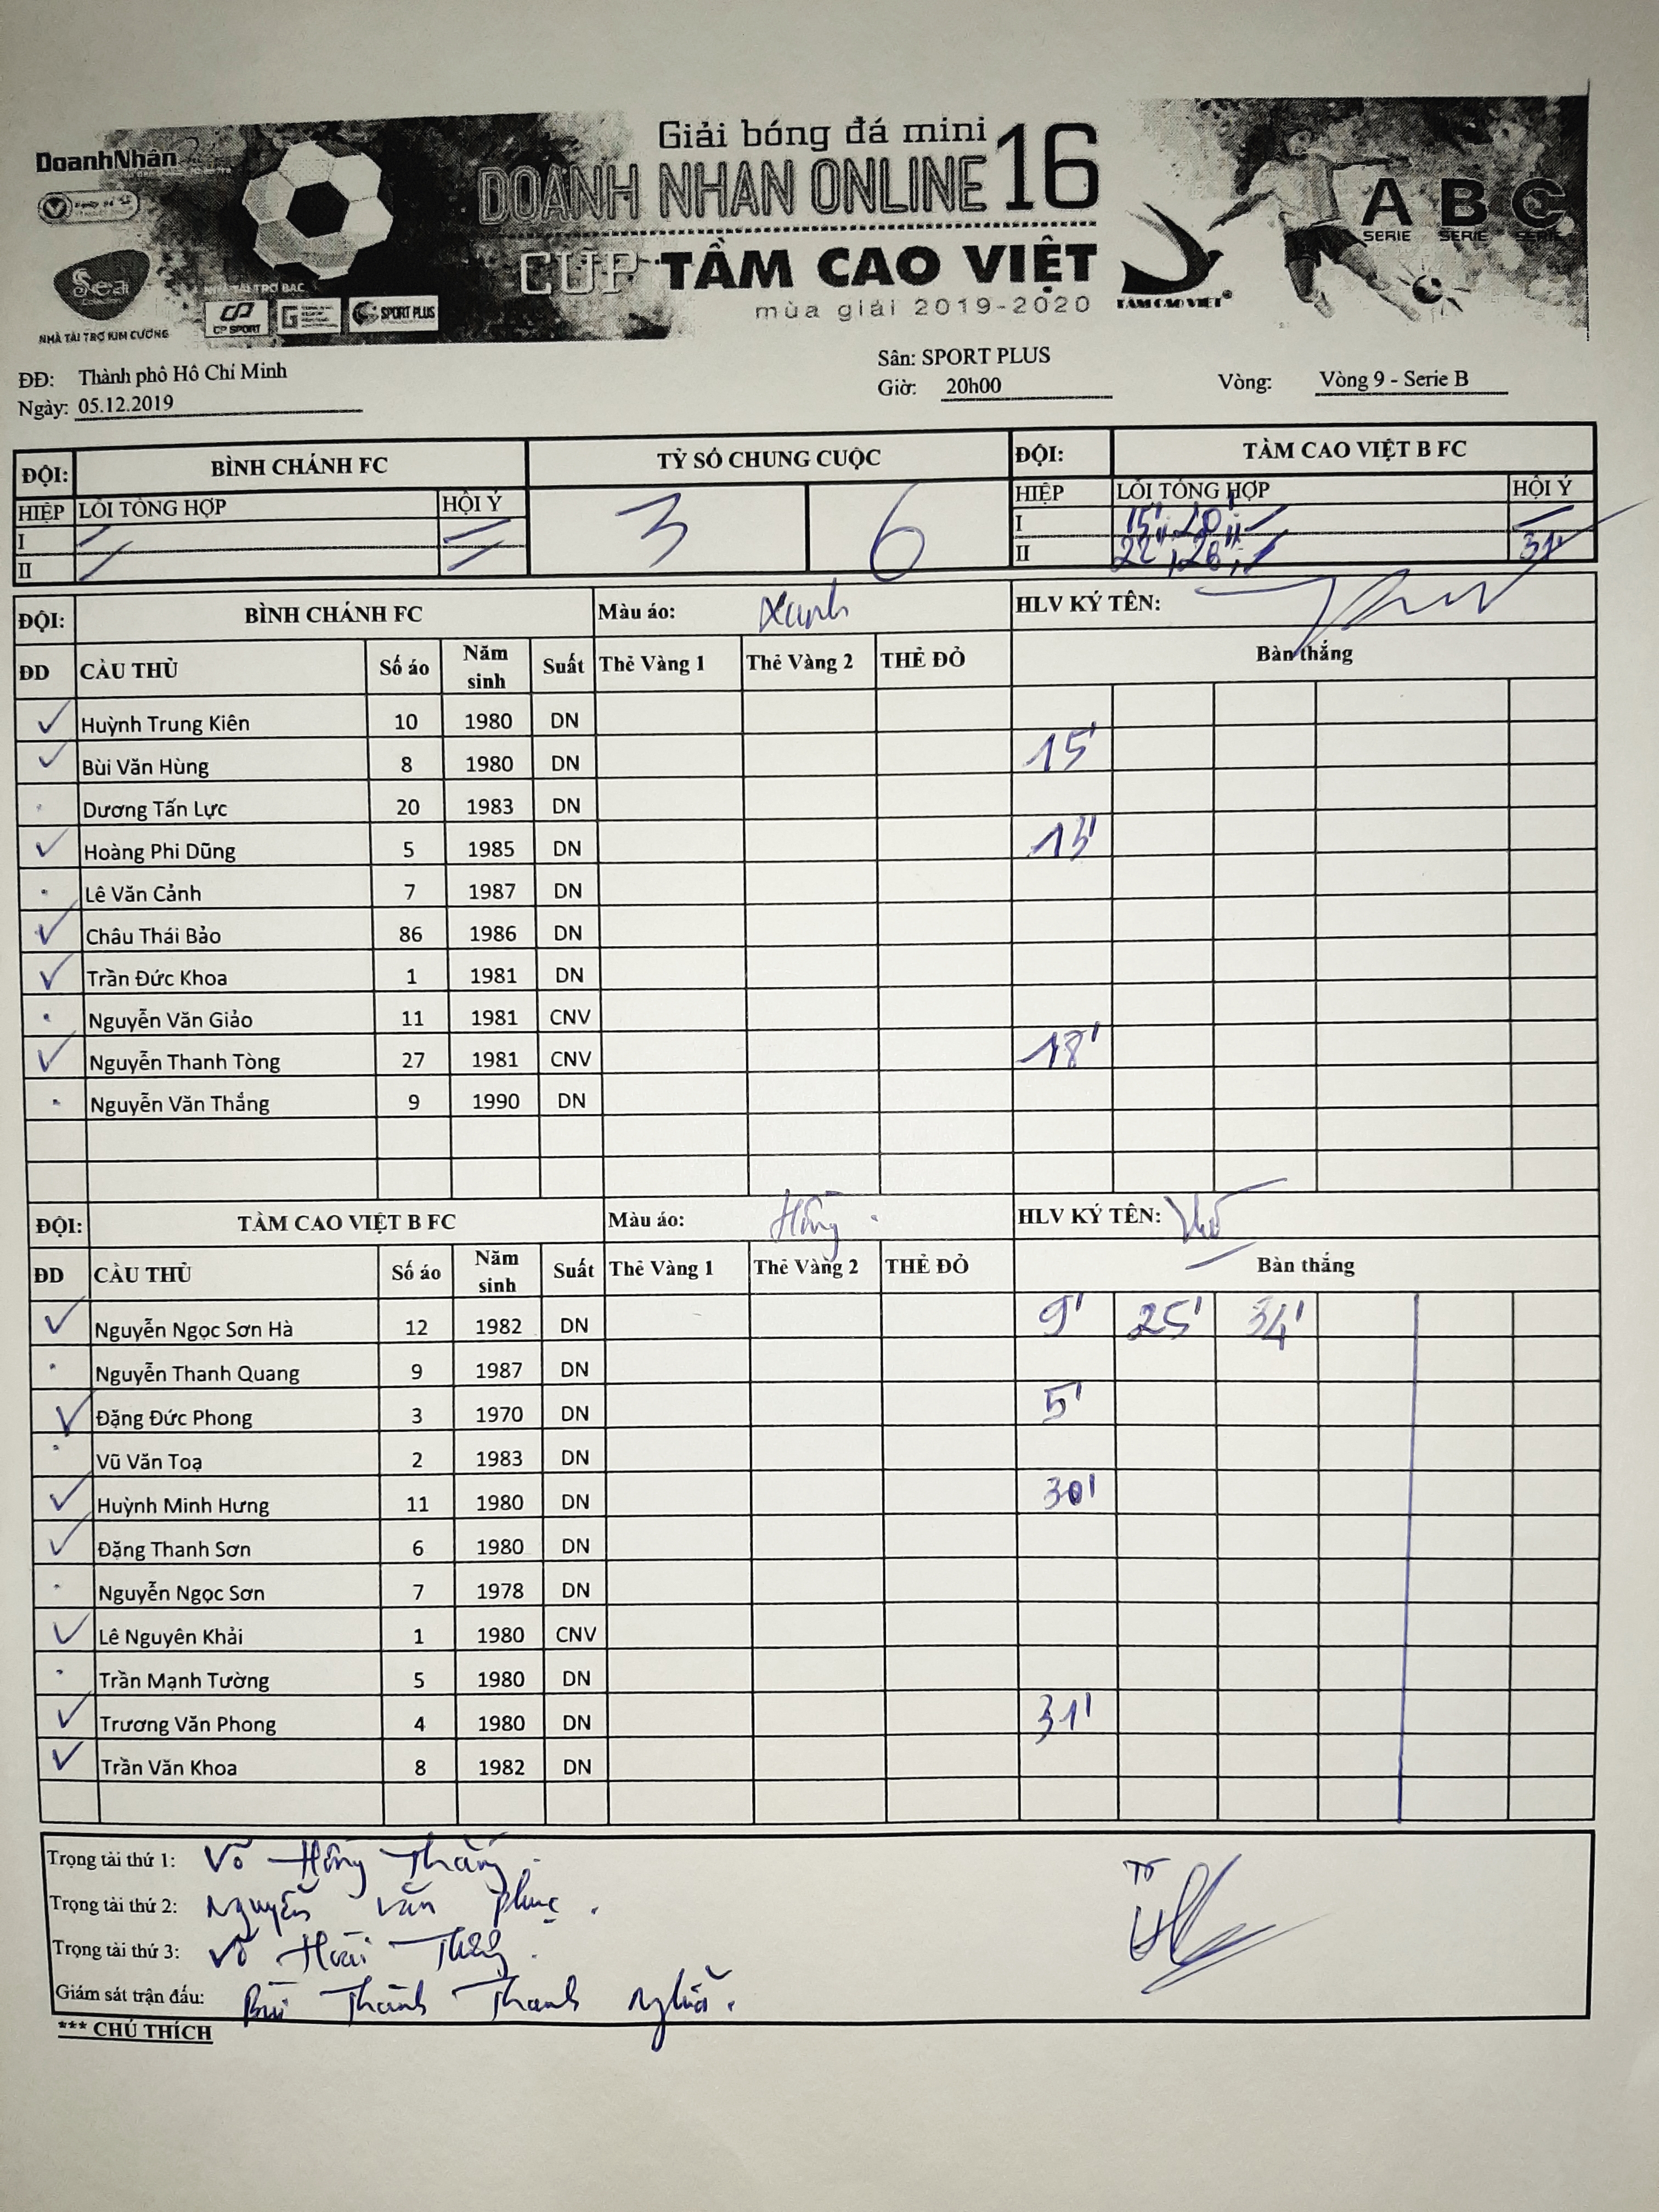 DoanhNhân
Giải bóng đá mini
DOANH NHAN ONLINE 16
CUP TẦM CAO VIỆT
mùa giải 2019-2020
TẦM CAO VIỆT
A B C
SERIE SERIE SERIE
Seal
Collection
NHÀ TÀI TRỢ KIM CƯƠNG
NHÀ TÀI TRỢ BẠC
CP SPORT
SPORT PLUS
ĐĐ: Thành phô Hô Chí Minh
Ngày: 05.12.2019
Sân: SPORT PLUS
Giờ: 20h00
Vòng: Vòng 9 - Serie B
ĐỘI: BÌNH CHÁNH FC TỶ SỐ CHUNG CUỘC ĐỘI: TẦM CAO VIỆT B FC
HIỆP LỖI TỔNG HỢP HỘI Ý 3 6 HIỆP LỖI TỔNG HỢP HỘI Ý
I I 15'
II II 22' 31'
ĐỘI: BÌNH CHÁNH FC Màu áo: Xanh HLV KÝ TÊN:
ĐD CẦU THỦ Số áo Năm sinh Suất Thẻ Vàng 1 Thẻ Vàng 2 THẺ ĐỎ Bàn thắng
Huỳnh Trung Kiên 10 1980 DN
Bùi Văn Hùng 8 1980 DN 15'
Dương Tấn Lực 20 1983 DN
Hoàng Phi Dũng 5 1985 DN 13'
Lê Văn Cảnh 7 1987 DN
Châu Thái Bảo 86 1986 DN
Trần Đức Khoa 1 1981 DN
Nguyễn Văn Giảo 11 1981 CNV
Nguyễn Thanh Tòng 27 1981 CNV 18'
Nguyễn Văn Thắng 9 1990 DN
ĐỘI: TẦM CAO VIỆT B FC Màu áo: Hồng HLV KÝ TÊN:
ĐD CẦU THỦ Số áo Năm sinh Suất Thẻ Vàng 1 Thẻ Vàng 2 THẺ ĐỎ Bàn thắng
Nguyễn Ngọc Sơn Hà 12 1982 DN 9' 25' 34'
Nguyễn Thanh Quang 9 1987 DN
Đặng Đức Phong 3 1970 DN 5'
Vũ Văn Toạ 2 1983 DN
Huỳnh Minh Hưng 11 1980 DN 30'
Đặng Thanh Sơn 6 1980 DN
Nguyễn Ngọc Sơn 7 1978 DN
Lê Nguyên Khải 1 1980 CNV
Trần Mạnh Tường 5 1980 DN
Trương Văn Phong 4 1980 DN 31'
Trần Văn Khoa 8 1982 DN
Trọng tài thứ 1: Võ Hồng Thắng.
Trọng tài thứ 2: Nguyễn Văn Phục.
Trọng tài thứ 3: Võ Hoài
Giám sát trận đấu: Bùi Thành Thanh Nghĩa.
*** CHÚ THÍCH